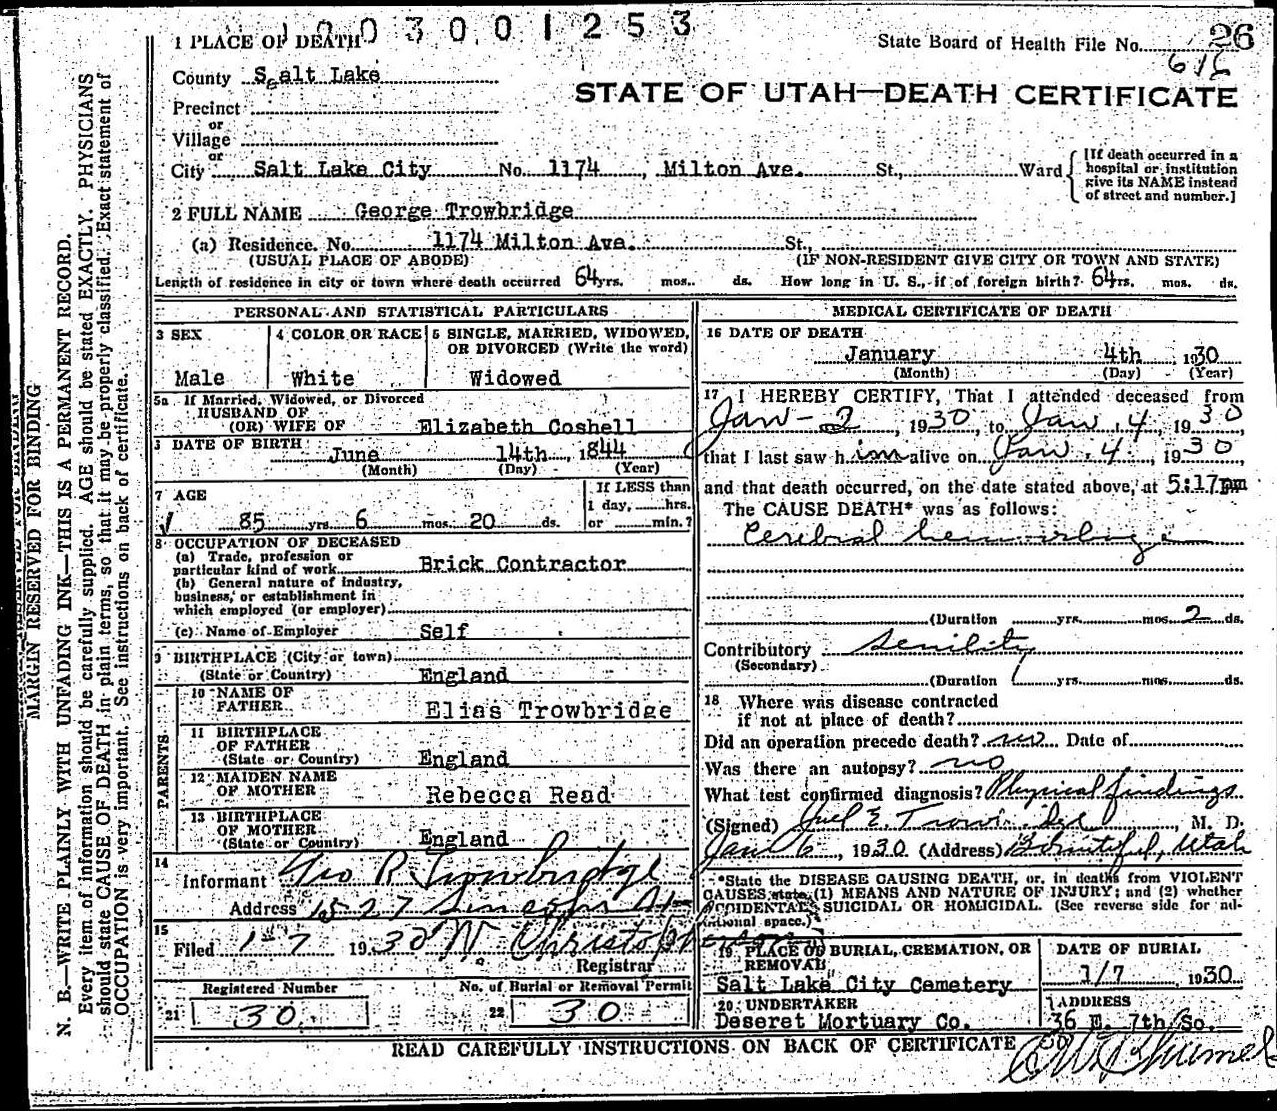 1003001253
1 PLACE OF DEATH
State Board of Health File No. 26
616
County Salt Lake
STATE OF UTAH—DEATH CERTIFICATE
Precinct
or
Village
or
City Salt Lake City No. 1174, Milton Ave. St., Ward
[If death occurred in a hospital or institution give its NAME instead of street and number.]
2 FULL NAME George Trowbridge
(a) Residence. No. 1174 Milton Ave. St.,
(USUAL PLACE OF ABODE) (IF NON-RESIDENT GIVE CITY OR TOWN AND STATE)
Length of residence in city or town where death occurred 64 yrs. mos. ds. How long in U. S., if of foreign birth? 64 rs. mos. ds.
PERSONAL AND STATISTICAL PARTICULARS
3 SEX
Male
4 COLOR OR RACE
White
5 SINGLE, MARRIED, WIDOWED, OR DIVORCED (Write the word)
Widowed
5a If Married, Widowed, or Divorced
HUSBAND OF
(OR) WIFE OF Elizabeth Coshell
DATE OF BIRTH June 14th, 1844
(Month) (Day) (Year)
7 AGE
85 yrs. 6 mos. 20 ds.
If LESS than
1 day, hrs.
or min.?
8 OCCUPATION OF DECEASED
(a) Trade, profession or
particular kind of work Brick Contractor
(b) General nature of industry,
business, or establishment in
which employed (or employer)
(c) Name of Employer Self
9 BIRTHPLACE (City or town)
(State or Country) England
PARENTS
10 NAME OF
FATHER Elias Trowbridge
11 BIRTHPLACE
OF FATHER
(State or Country) England
12 MAIDEN NAME
OF MOTHER Rebecca Read
13 BIRTHPLACE
OF MOTHER
(State or Country) England
14
Informant Geo R Trowbridge
Address 1527 Lincoln St
15
Filed 1-7 1930
Registrar
Registered Number
21 30
No. of Burial or Removal Permit
22 30
MEDICAL CERTIFICATE OF DEATH
16 DATE OF DEATH
January 4th 1930
(Month) (Day) (Year)
17 I HEREBY CERTIFY, That I attended deceased from
Jan - 2, 1930, to Jan. 4, 1930
that I last saw him alive on Jan. 4, 1930,
and that death occurred, on the date stated above, at 5:17pm
The CAUSE DEATH* was as follows:
Cerebral hemorrhage
(Duration yrs. mos. 2 ds.
Contributory Senility
(Secondary)
(Duration yrs. mos. ds.
18 Where was disease contracted
if not at place of death?
Did an operation precede death? no Date of
Was there an autopsy? no
What test confirmed diagnosis? Physical findings
(Signed) Joel E. Trowbridge, M. D.
Jan 6, 1930 (Address) Bountiful, Utah
*State the DISEASE CAUSING DEATH, or, in deaths from VIOLENT
CAUSES, state (1) MEANS AND NATURE OF INJURY; and (2) whether
ACCIDENTAL, SUICIDAL OR HOMICIDAL. (See reverse side for ad-
ditional space.)
19 PLACE OF BURIAL, CREMATION, OR
REMOVAL
Salt Lake City Cemetery
DATE OF BURIAL
1/7 1930
20 UNDERTAKER
Deseret Mortuary Co.
ADDRESS
36 E. 7th So.
READ CAREFULLY INSTRUCTIONS ON BACK OF CERTIFICATE
MARGIN RESERVED FOR BINDING
N. B.—WRITE PLAINLY WITH UNFADING INK—THIS IS A PERMANENT RECORD.
Every item of information should be carefully supplied. AGE should be stated EXACTLY. PHYSICIANS
should state CAUSE OF DEATH in plain terms, so that it may be properly classified. Exact statement of
OCCUPATION is very important. See instructions on back of certificate.